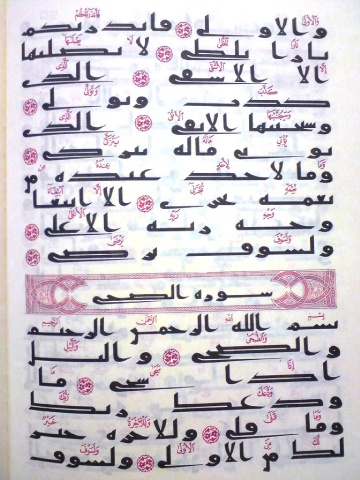 والاولى فانذرتكم
نارا تلظى لا يصليها
الا الاشقى الذى
كذب وتولى
وسيجنبها الاتقى الذى
يوتى ماله يتزكى
وما لاحد عنده من
نعمه تجزى الا ابتغا
وجه ربه الاعلى
ولسوف يرضى
سوره الضحى
بسم الله الرحمن الرحيم
والضحى واليل
اذا سجى ما
ودعك ربك
وما قلى وللاخره خير
لك من الاولى ولسوف